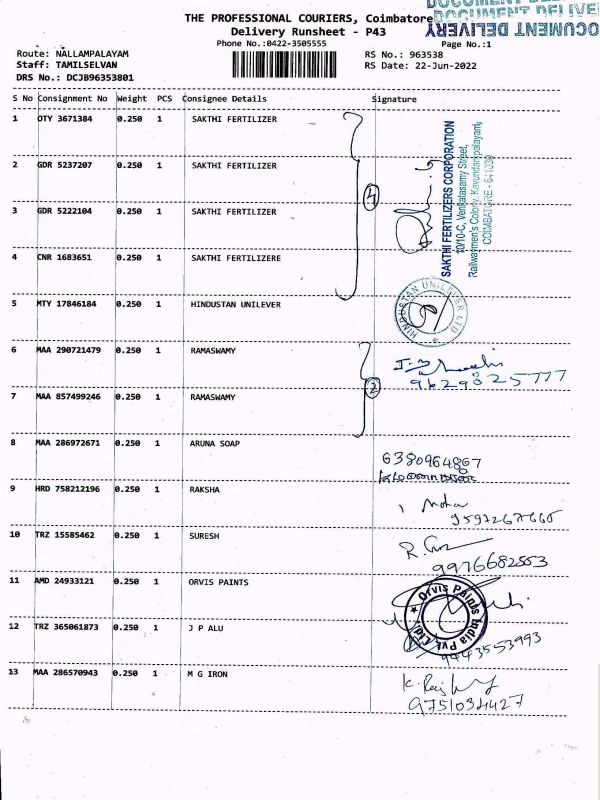 THE PROFESSIONAL COURIERS, Coimbatore
Delivery Runsheet - P43
DOCUMENT DELIVERY
Phone No.:0422-3505555
Page No.:1
Route: NALLAMPALAYAM
RS No.: 963538
Staff: TAMILSELVAN
RS Date: 22-Jun-2022
DRS No.: DCJB96353801
S No Consignment No Weight PCS Consignee Details Signature
1 OTY 3671384 0.250 1 SAKTHI FERTILIZER
2 GDR 5237207 0.250 1 SAKTHI FERTILIZER
3 GDR 5222104 0.250 1 SAKTHI FERTILIZER
4
SAKTHI FERTILIZERS CORPORATION
10/10-C, Venkatasamy Street,
Railwaymen's Colony, Kavundampalayam,
COIMBATORE - 641030
4 CNR 1683651 0.250 1 SAKTHI FERTILIZERE
5 MTY 17846184 0.250 1 HINDUSTAN UNILEVER
HINDUSTAN UNILEVER LTD
6 MAA 290721479 0.250 1 RAMASWAMY
9629825777
2
7 MAA 857499246 0.250 1 RAMASWAMY
8 MAA 286972671 0.250 1 ARUNA SOAP
6380964867
9 HRD 758212196 0.250 1 RAKSHA
10 TRZ 15585462 0.250 1 SURESH
9976682553
11 AMD 24933121 0.250 1 ORVIS PAINTS
Orvis Paints India Pvt Ltd
12 TRZ 365061873 0.250 1 J P ALU
9443553993
13 MAA 286570943 0.250 1 M G IRON
9751034427